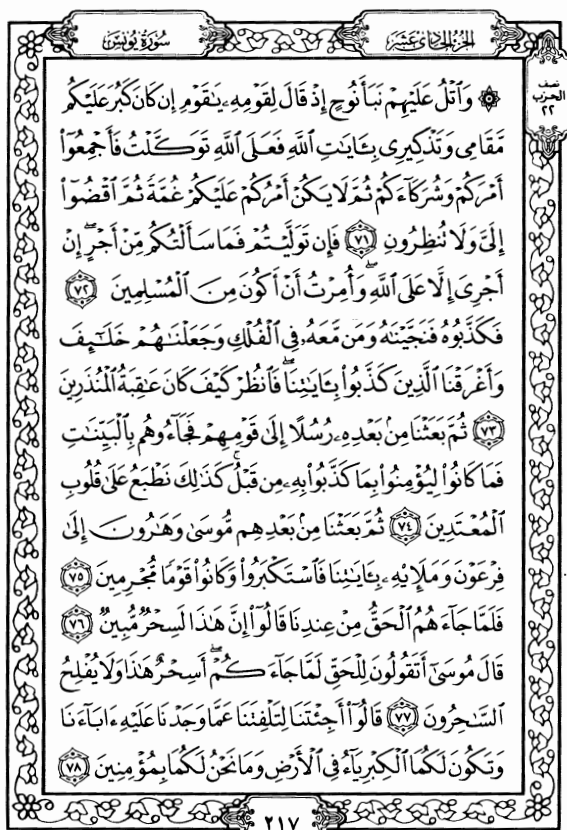 سُورَةُ يُونُسَ
الجُزءُ الحَادِي عَشَرَ
نصف
الحزب
٢٢
۞ وَٱتۡلُ عَلَيۡهِمۡ نَبَأَ نُوحٍ إِذۡ قَالَ لِقَوۡمِهِۦ يَٰقَوۡمِ إِن كَانَ كَبُرَ عَلَيۡكُم
مَّقَامِي وَتَذۡكِيرِي بِـَٔايَٰتِ ٱللَّهِ فَعَلَى ٱللَّهِ تَوَكَّلۡتُ فَأَجۡمِعُوٓاْ
أَمۡرَكُمۡ وَشُرَكَآءَكُمۡ ثُمَّ لَا يَكُنۡ أَمۡرُكُمۡ عَلَيۡكُمۡ غُمَّةٗ ثُمَّ ٱقۡضُوٓاْ
إِلَيَّ وَلَا تُنظِرُونِ ٧١ فَإِن تَوَلَّيۡتُمۡ فَمَا سَأَلۡتُكُم مِّنۡ أَجۡرٍۖ إِنۡ
أَجۡرِيَ إِلَّا عَلَى ٱللَّهِۖ وَأُمِرۡتُ أَنۡ أَكُونَ مِنَ ٱلۡمُسۡلِمِينَ ٧٢
فَكَذَّبُوهُ فَنَجَّيۡنَٰهُ وَمَن مَّعَهُۥ فِي ٱلۡفُلۡكِ وَجَعَلۡنَٰهُمۡ خَلَٰٓئِفَ
وَأَغۡرَقۡنَا ٱلَّذِينَ كَذَّبُواْ بِـَٔايَٰتِنَاۖ فَٱنظُرۡ كَيۡفَ كَانَ عَٰقِبَةُ ٱلۡمُنذَرِينَ
٧٣ ثُمَّ بَعَثۡنَا مِنۢ بَعۡدِهِۦ رُسُلًا إِلَىٰ قَوۡمِهِمۡ فَجَآءُوهُم بِٱلۡبَيِّنَٰتِ
فَمَا كَانُواْ لِيُؤۡمِنُواْ بِمَا كَذَّبُواْ بِهِۦ مِن قَبۡلُۚ كَذَٰلِكَ نَطۡبَعُ عَلَىٰ قُلُوبِ
ٱلۡمُعۡتَدِينَ ٧٤ ثُمَّ بَعَثۡنَا مِنۢ بَعۡدِهِم مُّوسَىٰ وَهَٰرُونَ إِلَىٰ
فِرۡعَوۡنَ وَمَلَإِيْهِۦ بِـَٔايَٰتِنَا فَٱسۡتَكۡبَرُواْ وَكَانُواْ قَوۡمٗا مُّجۡرِمِينَ ٧٥
فَلَمَّا جَآءَهُمُ ٱلۡحَقُّ مِنۡ عِندِنَا قَالُوٓاْ إِنَّ هَٰذَا لَسِحۡرٞ مُّبِينٞ ٧٦
قَالَ مُوسَىٰٓ أَتَقُولُونَ لِلۡحَقِّ لَمَّا جَآءَكُمۡۖ أَسِحۡرٌ هَٰذَا وَلَا يُفۡلِحُ
ٱلسَّٰحِرُونَ ٧٧ قَالُوٓاْ أَجِئۡتَنَا لِتَلۡفِتَنَا عَمَّا وَجَدۡنَا عَلَيۡهِ ءَابَآءَنَا
وَتَكُونَ لَكُمَا ٱلۡكِبۡرِيَآءُ فِي ٱلۡأَرۡضِ وَمَا نَحۡنُ لَكُمَا بِمُؤۡمِنِينَ ٧٨
٢١٧